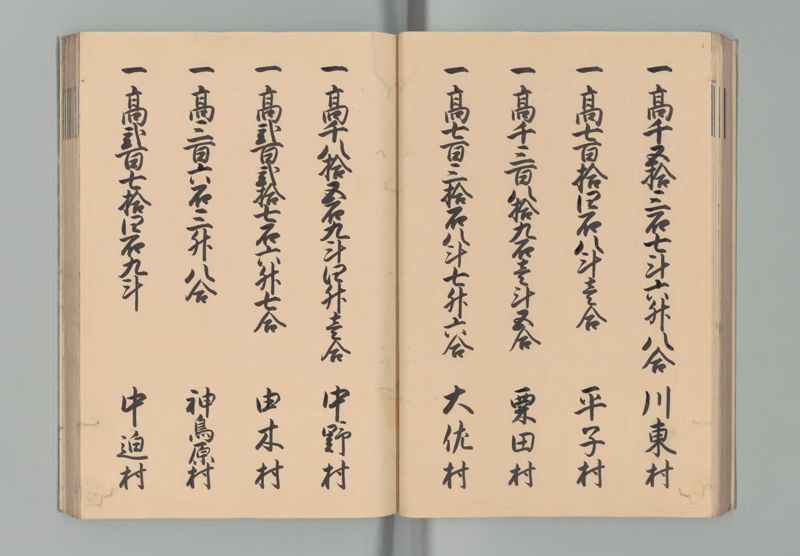 一 高千五拾三石七斗六升八合 川東村
一 高七百拾四石八斗壱合 平子村
一 高千三百八拾九石壱斗五合 粟田村
一 高七百三拾石八斗七升六合 大佐村
一 高千八拾五石九斗四升壱合 中野村
一 高弐百弐拾七石六升七合 由木村
一 高三百六石三升八合 神鳥原村
一 高弐百七拾四石九斗 中迫村